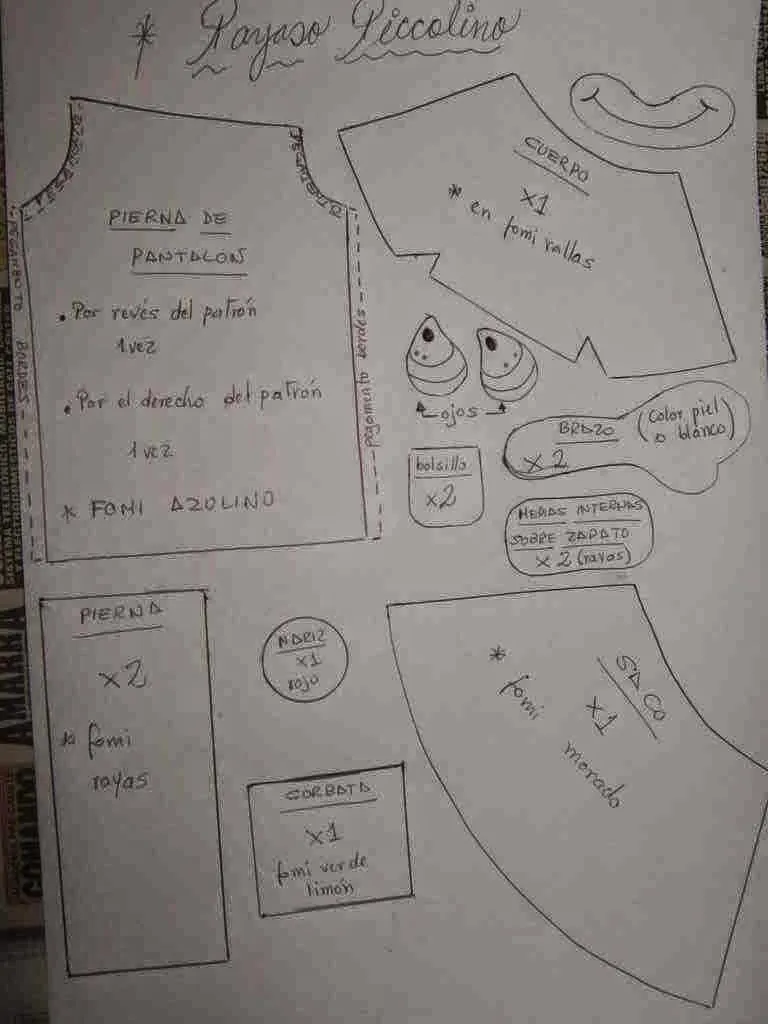 * Payaso Piccolino
PIERNA DE
PANTALON
• Por revés del patrón
1 vez
• Por el derecho del patrón
1 vez
* FOMI AZULINO
PEGAMENTO BORDES
pegamento bordes
CUERPO
x1
* en fomi rallas
ojos
bolsillo
x2
BRAZO
x2
(color piel
o blanco)
MEDIAS INTERNAS
SOBRE ZAPATO
x2 (rayas)
PIERNA
x2
* fomi
rayas
NARIZ
x1
rojo
CORBATA
x1
fomi verde
limón
SACO
x1
* fomi morado
AMARRA